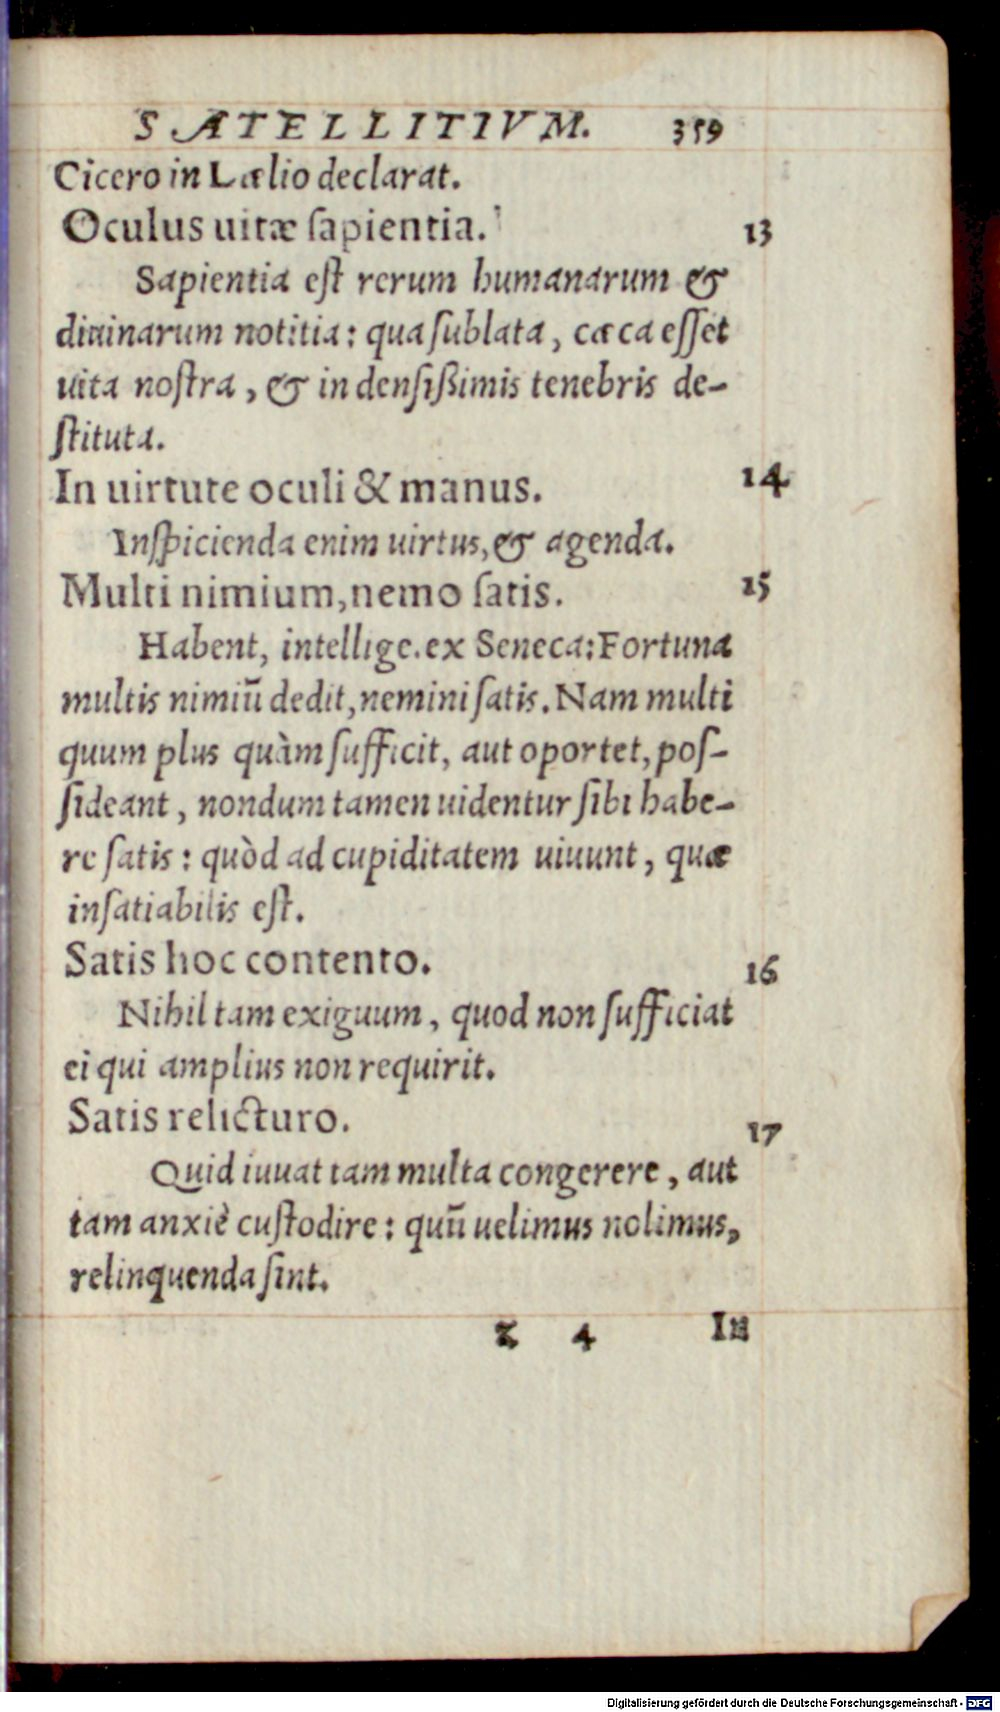 SATELLITIVM. 359
Cicero in Lælio declarat.
Oculus uitæ ſapientia. 13
Sapientia eſt rerum humanarum &
diuinarum notitia: qua ſublata, cæca eſſet
uita noſtra, & in denſißimis tenebris de-
ſtituta.
In uirtute oculi & manus. 14
Inſpicienda enim uirtus, & agenda.
Multi nimium, nemo ſatis. 15
Habent, intellige. ex Seneca: Fortuna
multis nimiū dedit, nemini ſatis. Nam multi
quum plus quàm ſufficit, aut oportet, poſ-
ſideant, nondum tamen uidentur ſibi habe-
re ſatis: quòd ad cupiditatem uiuunt, quæ
inſatiabilis eſt.
Satis hoc contento. 16
Nihil tam exiguum, quod non ſufficiat
ei qui amplius non requirit.
Satis relicturo. 17
Quid iuuat tam multa congerere, aut
tam anxiè cuſtodire: quū uelimus nolimus,
relinquenda ſint.
z 4 In
Digitalisierung gefördert durch die Deutsche Forschungsgemeinschaft - DFG